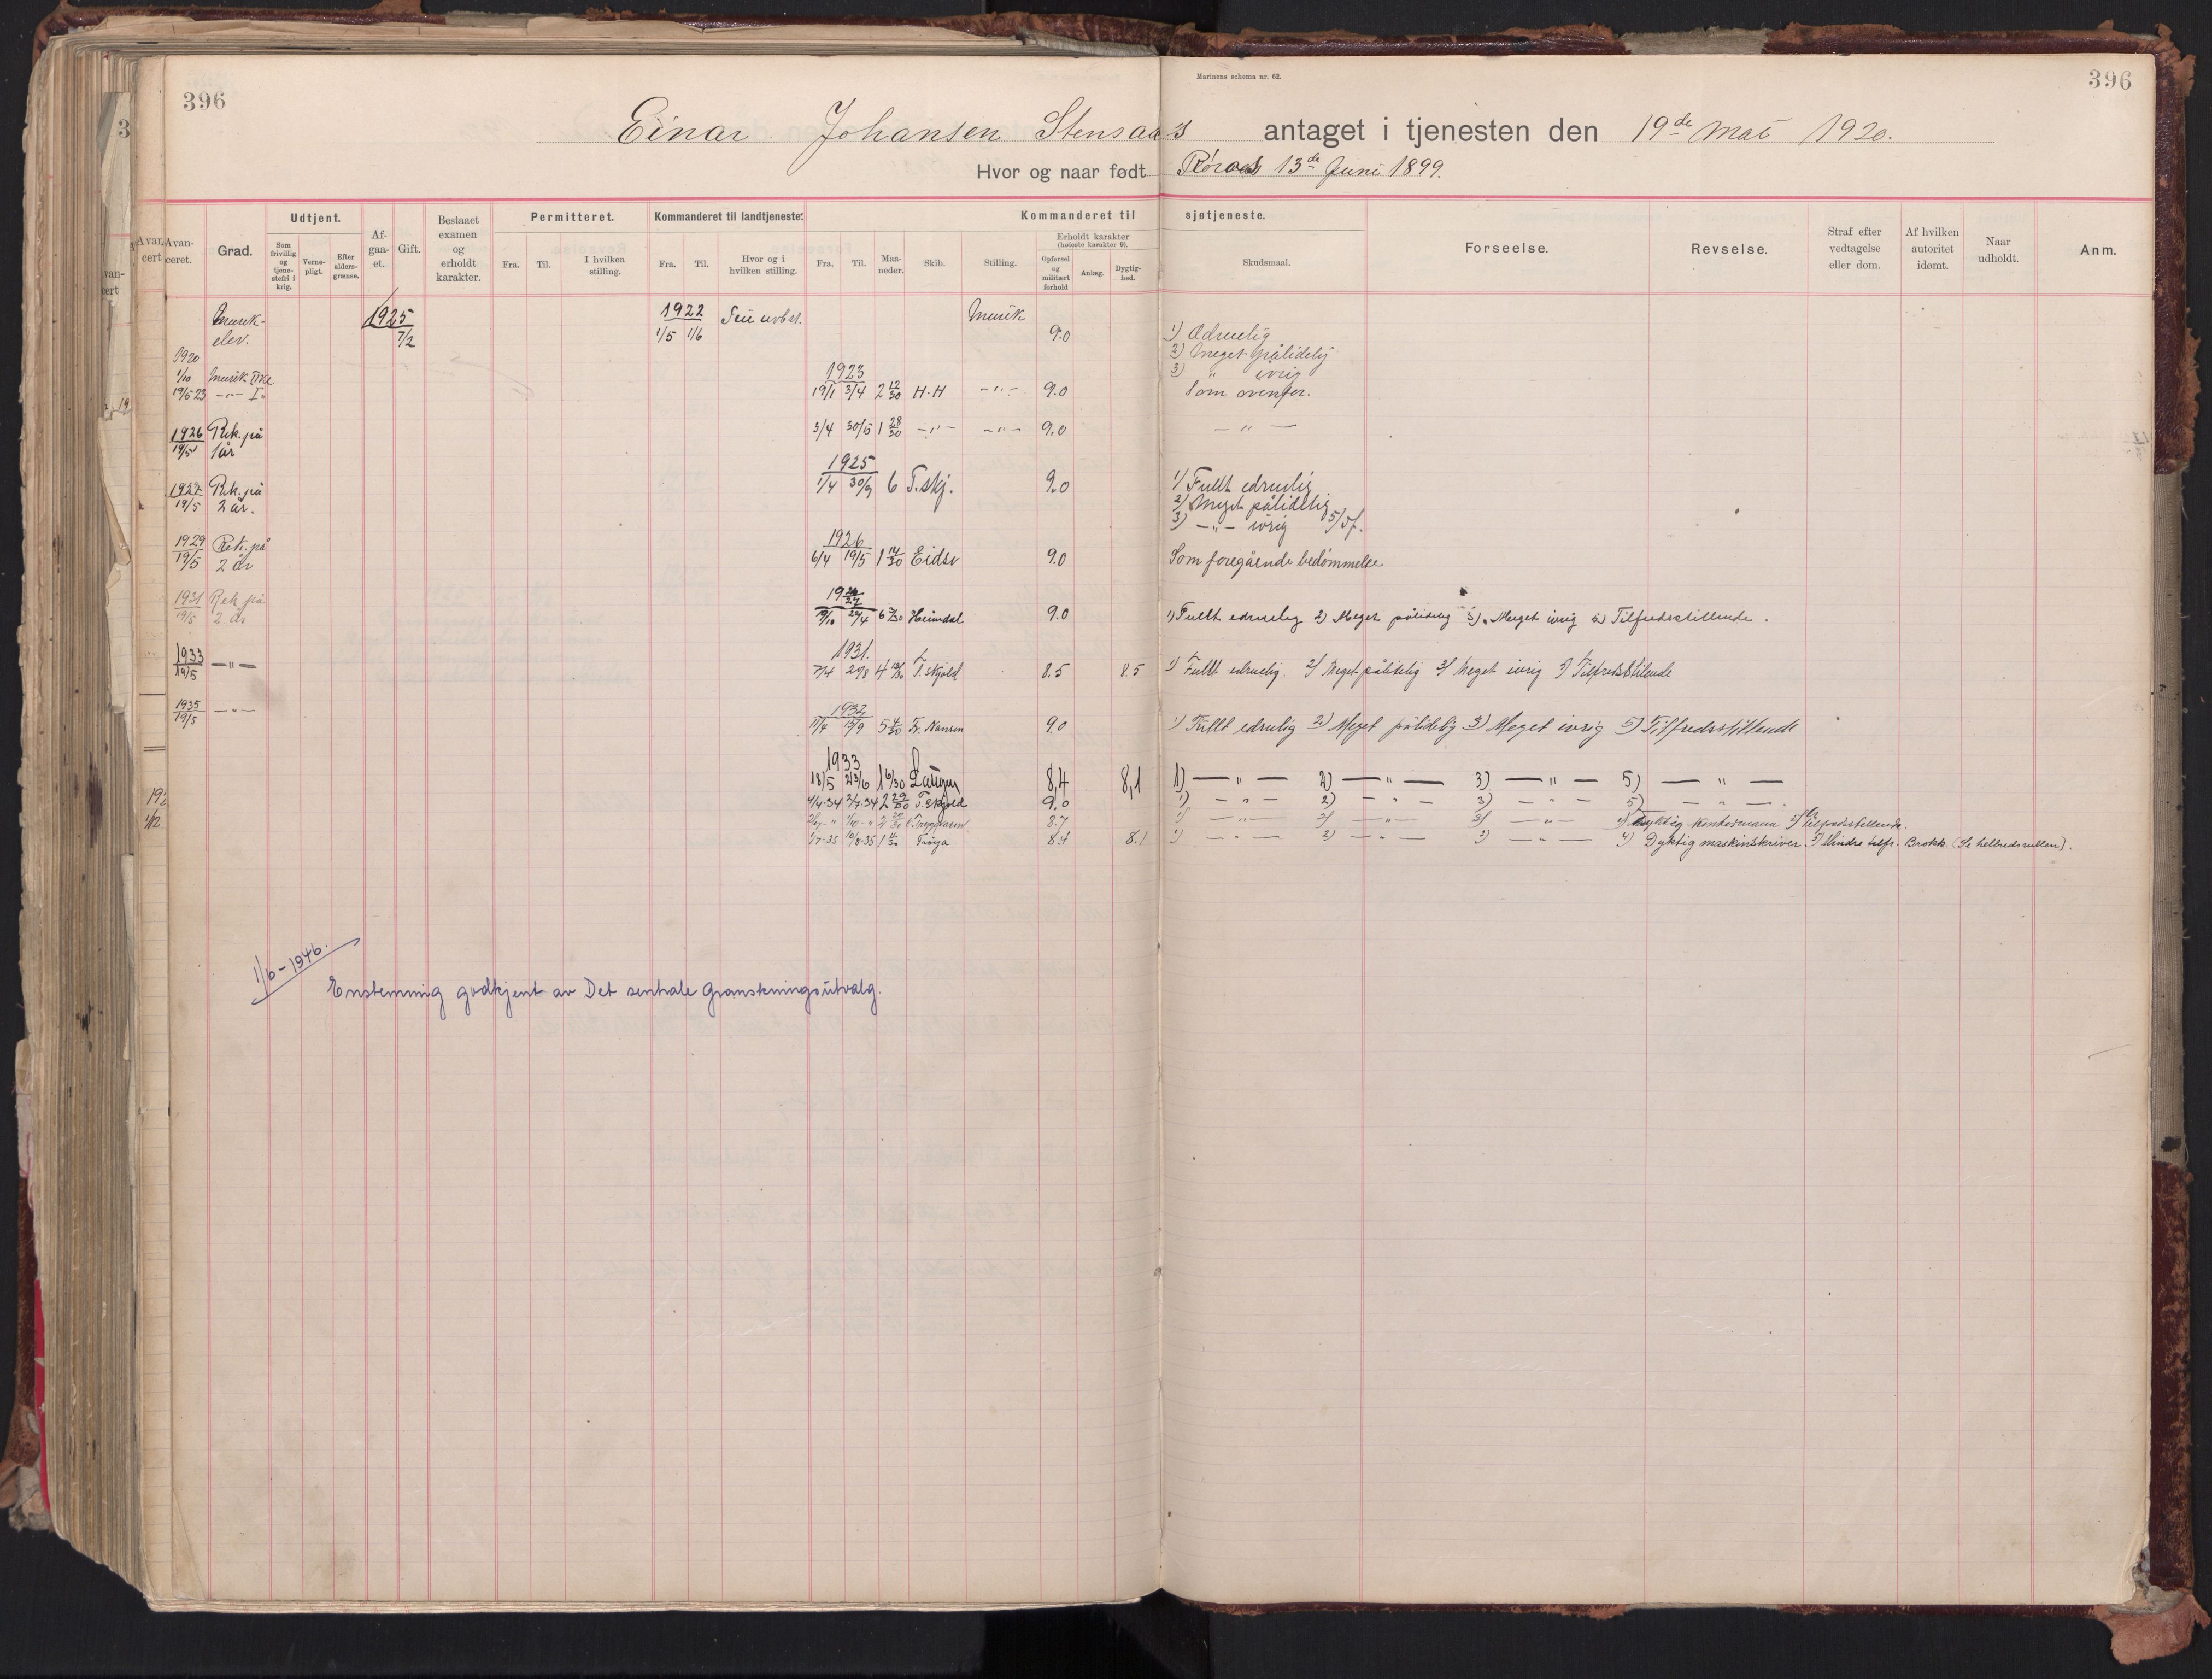 396
Marinens schema nr. 62.
396
Einar Johansen Stensaas antaget i tjenesten den 19de Mai 1920.
Hvor og naar født Røraas 13de Juni 1899.
Avancert
Avanceret.
Grad.
Udtjent.
Som frivillig og tjenestefri i krig.
Vernepligt.
Efter aldersgrænse.
Afgaaet.
Gift.
Bestaaet examen og erholdt karakter.
Permitteret.
Fra.
Til.
I hvilken stilling.
Kommanderet til landtjeneste:
Fra.
Til.
Hvor og i hvilken stilling.
Kommanderet til sjøtjeneste.
Fra.
Til.
Maaneder.
Skib.
Stilling.
Erholdt karakter (høieste karakter 9).
Opførsel og militært forhold
Anlæg.
Dygtighed.
Skudsmaal.
Forseelse.
Revselse.
Straf efter vedtagelse eller dom.
Af hvilken autoritet idømt.
Naar udholdt.
Anm.
Musik- 1925 1922 Musik
elev. 7/2 1/5 1/6 9.0 1) Ædruelig
2) Meget pålidelig
3) " ivrig
1920
1/10 Musik II kl. 1923
19/5 23 -"- I. 19/1 3/4 2 12/30 H.H -"- 9.0 Som ovenfor.
1926 Rek. på 3/4 30/5 1 28/30 -"- -"- 9.0 - " -
19/5 1 år
1925
1927 Rek. på 1/4 30/9 6 T.skj. 9.0 1) Fullt edruelig
19/5 2 år. 2) Meget pålidelig
3) -"- ivrig 5/ Sf.
1929 Rek. på 1926
19/5 2 år 6/4 19/5 1 14/30 Eidsv 9.0 Som foregående bedømmelse
1931 Rek på
19/5 2 år 19/10 29/4 6 Heimdal 9.0 1) Fullt edruelig 2) Meget pålidelig 3) Meget ivrig 5) Tilfredsstillende.
1933 -"- 1931.
19/5 7/4 29/8 4 T.skjold 8.5 8.5 1) Fullt edruelig. 2) Meget pålidelig 3) Meget ivrig 5) Tilfredsstilende
1935 -"- 1932
19/5 11/4 15/9 5 4/30 Fr. Nansen 9.0 1) Fullt edruelig 2) Meget pålidelig 3) Meget ivrig 5) Tilfredsstillende
1933
18/5 23/6 1 6/30 Laugen 8,4 8,1 1) - " - 2) - " - 3) - " - 5) - " -
4/4-34 2/7-34 2 29/30 T.skjold 9.0 1) - " - 2) - " - 3) - " - 5) - " -
Tryggvason 8.7 1) - " - 2) - " - 3) - " - 4) Dyktig kontormann 5) Tilfredsstillende.
1/7-35 10/8-35 1 Frøya 8.4 8.1 1) - " - 2) - " - 3) - " - 4) Dyktig maskinskriver. 5) Mindre tilfr. Brokk. (Se helbredsrullen).
1/6-1946.
Enstemmig godkjent av Det sentrale Granskningsutvalg.